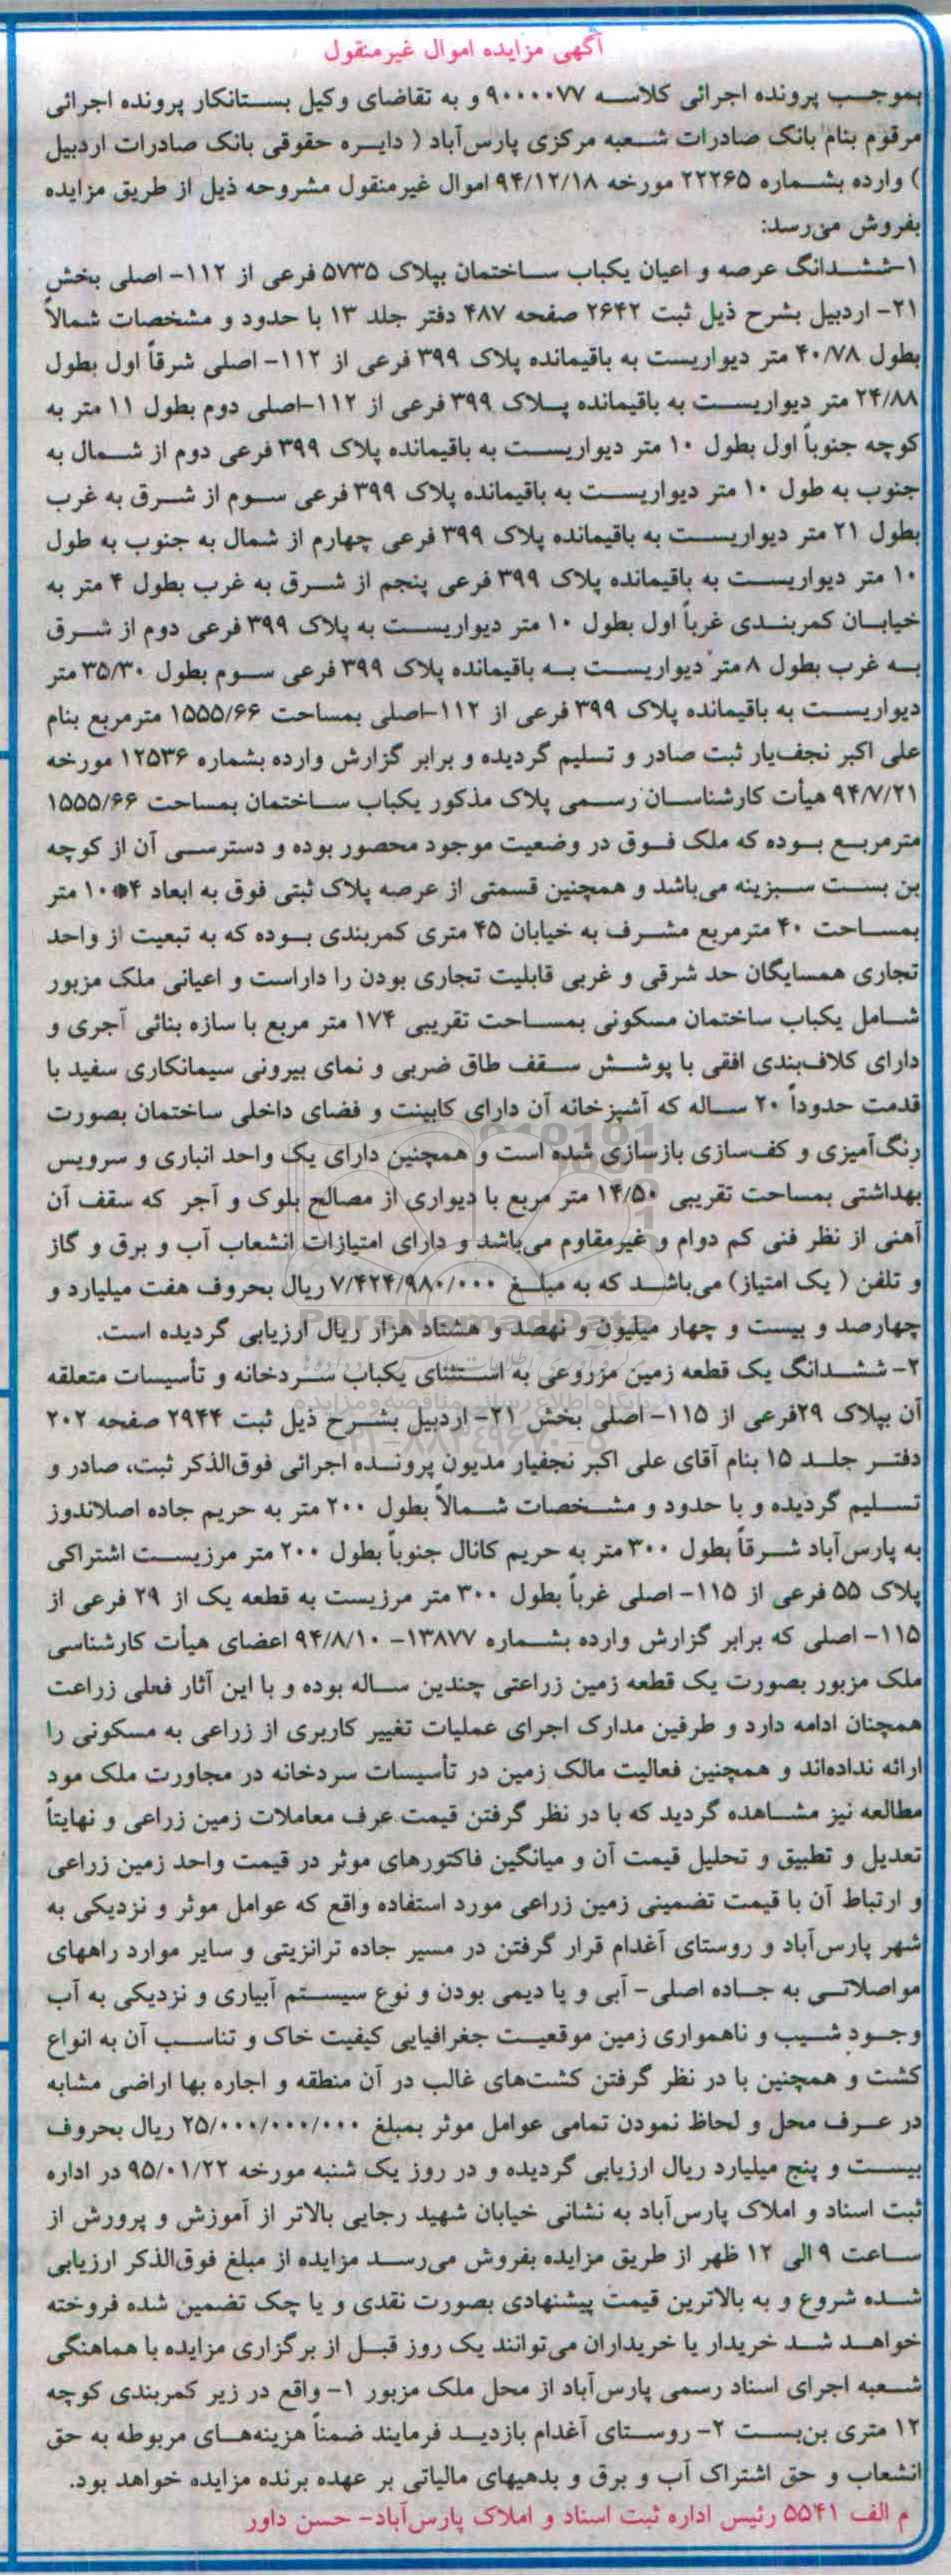 آگهی مزایده اموال غیرمنقول
بموجب پرونده اجرائی کلاسه ۹۰۰۰۰۷۷ و به تقاضای وکیل بستانکار پرونده اجرائی
مرقوم بنام بانک صادرات شعبه مرکزی پارس‌آباد ( دایره حقوقی بانک صادرات اردبیل
) وارده بشماره ۲۲۲۶۵ مورخه ۹۴/۱۲/۱۸ اموال غیرمنقول مشروحه ذیل از طریق مزایده
بفروش می‌رسد:
۱-ششدانگ عرصه و اعیان یکباب ساختمان بپلاک ۵۷۳۵ فرعی از ۱۱۲- اصلی بخش
۲۱- اردبیل بشرح ذیل ثبت ۲۶۴۲ صفحه ۴۸۷ دفتر جلد ۱۳ با حدود و مشخصات شمالاً
بطول ۴۰/۷۸ متر دیواریست به باقیمانده پلاک ۳۹۹ فرعی از ۱۱۲- اصلی شرقاً اول بطول
۲۴/۸۸ متر دیواریست به باقیمانده پلاک ۳۹۹ فرعی از ۱۱۲-اصلی دوم بطول ۱۱ متر به
کوچه جنوباً اول بطول ۱۰ متر دیواریست به باقیمانده پلاک ۳۹۹ فرعی دوم از شمال به
جنوب به طول ۱۰ متر دیواریست به باقیمانده پلاک ۳۹۹ فرعی سوم از شرق به غرب
بطول ۲۱ متر دیواریست به باقیمانده پلاک ۳۹۹ فرعی چهارم از شمال به جنوب به طول
۱۰ متر دیواریست به باقیمانده پلاک ۳۹۹ فرعی پنجم از شرق به غرب بطول ۴ متر به
خیابان کمربندی غرباً اول بطول ۱۰ متر دیواریست به پلاک ۳۹۹ فرعی دوم از شرق
به غرب بطول ۸ متر دیواریست به باقیمانده پلاک ۳۹۹ فرعی سوم بطول ۳۵/۳۰ متر
دیواریست به باقیمانده پلاک ۳۹۹ فرعی از ۱۱۲-اصلی بمساحت ۱۵۵۵/۶۶ مترمربع بنام
علی اکبر نجف‌یار ثبت صادر و تسلیم گردیده و برابر گزارش وارده بشماره ۱۲۵۳۶ مورخه
۹۴/۷/۲۱ هیأت کارشناسان رسمی پلاک مذکور یکباب ساختمان بمساحت ۱۵۵۵/۶۶
مترمربع بوده که ملک فوق در وضعیت موجود محصور بوده و دسترسی آن از کوچه
بن بست سبزینه می‌باشد و همچنین قسمتی از عرصه پلاک ثبتی فوق به ابعاد ۴*۱۰ متر
بمساحت ۴۰ مترمربع مشرف به خیابان ۴۵ متری کمربندی بوده که به تبعیت از واحد
تجاری همسایگان حد شرقی و غربی قابلیت تجاری بودن را داراست و اعیانی ملک مزبور
شامل یکباب ساختمان مسکونی بمساحت تقریبی ۱۷۴ متر مربع با سازه بنائی آجری و
دارای کلاف‌بندی افقی با پوشش سقف طاق ضربی و نمای بیرونی سیمانکاری سفید با
قدمت حدوداً ۲۰ ساله که آشپزخانه آن دارای کابینت و فضای داخلی ساختمان بصورت
رنگ‌آمیزی و کف‌سازی بازسازی شده است و همچنین دارای یک واحد انباری و سرویس
بهداشتی بمساحت تقریبی ۱۴/۵۰ متر مربع با دیواری از مصالح بلوک و آجر که سقف آن
آهنی از نظر فنی کم دوام و غیرمقاوم می‌باشد و دارای امتیازات انشعاب آب و برق و گاز
و تلفن ( یک امتیاز) می‌باشد که به مبلغ ۷/۴۲۴/۹۸۰/۰۰۰ ریال بحروف هفت میلیارد و
چهارصد و بیست و چهار میلیون و نهصد و هشتاد هزار ریال ارزیابی گردیده است.
۲- ششدانگ یک قطعه زمین مزروعی به استثنای یکباب سردخانه و تأسیسات متعلقه
آن بپلاک ۲۹فرعی از ۱۱۵- اصلی بخش ۲۱- اردبیل بشرح ذیل ثبت ۲۹۴۴ صفحه ۲۰۲
دفتر جلد ۱۵ بنام آقای علی اکبر نجفیار مدیون پرونده اجرائی فوق‌الذکر ثبت، صادر و
تسلیم گردیده و با حدود و مشخصات شمالاً بطول ۲۰۰ متر به حریم جاده اصلاندوز
به پارس‌آباد شرقاً بطول ۳۰۰ متر به حریم کانال جنوباً بطول ۲۰۰ متر مرزیست اشتراکی
پلاک ۵۵ فرعی از ۱۱۵- اصلی غرباً بطول ۳۰۰ متر مرزیست به قطعه یک از ۲۹ فرعی از
۱۱۵- اصلی که برابر گزارش وارده بشماره ۱۳۸۷۷- ۹۴/۸/۱۰ اعضای هیأت کارشناسی
ملک مزبور بصورت یک قطعه زمین زراعتی چندین ساله بوده و با این آثار فعلی زراعت
همچنان ادامه دارد و طرفین مدارک اجرای عملیات تغییر کاربری از زراعی به مسکونی را
ارائه نداده‌اند و همچنین فعالیت مالک زمین در تأسیسات سردخانه در مجاورت ملک مود
مطالعه نیز مشاهده گردید که با در نظر گرفتن قیمت عرف معاملات زمین زراعی و نهایتاً
تعدیل و تطبیق و تحلیل قیمت آن و میانگین فاکتورهای موثر در قیمت واحد زمین زراعی
و ارتباط آن با قیمت تضمینی زمین زراعی مورد استفاده واقع که عوامل موثر و نزدیکی به
شهر پارس‌آباد و روستای آغدام قرار گرفتن در مسیر جاده ترانزیتی و سایر موارد راههای
مواصلاتی به جاده اصلی- آبی و یا دیمی بودن و نوع سیستم آبیاری و نزدیکی به آب
وجود شیب و ناهمواری زمین موقعیت جغرافیایی کیفیت خاک و تناسب آن به انواع
کشت و همچنین با در نظر گرفتن کشت‌های غالب در آن منطقه و اجاره بها اراضی مشابه
در عرف محل و لحاظ نمودن تمامی عوامل موثر بمبلغ ۲۵/۰۰۰/۰۰۰/۰۰۰ ریال بحروف
بیست و پنج میلیارد ریال ارزیابی گردیده و در روز یک شنبه مورخه ۹۵/۰۱/۲۲ در اداره
ثبت اسناد و املاک پارس‌آباد به نشانی خیابان شهید رجایی بالاتر از آموزش و پرورش از
ساعت ۹ الی ۱۲ ظهر از طریق مزایده بفروش می‌رسد مزایده از مبلغ فوق‌الذکر ارزیابی
شده شروع و به بالاترین قیمت پیشنهادی بصورت نقدی و یا چک تضمین شده فروخته
خواهد شد خریدار یا خریداران می‌توانند یک روز قبل از برگزاری مزایده با هماهنگی
شعبه اجرای اسناد رسمی پارس‌آباد از محل ملک مزبور ۱- واقع در زیر کمربندی کوچه
۱۲ متری بن‌بست ۲- روستای آغدام بازدید فرمایند ضمناً هزینه‌های مربوطه به حق
انشعاب و حق اشتراک آب و برق و بدهیهای مالیاتی بر عهده برنده مزایده خواهد بود.
م الف ۵۵۴۱ رئیس اداره ثبت اسناد و املاک پارس‌آباد- حسن داور